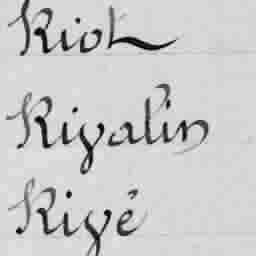 Kiot
Kiyalin
Kiyé